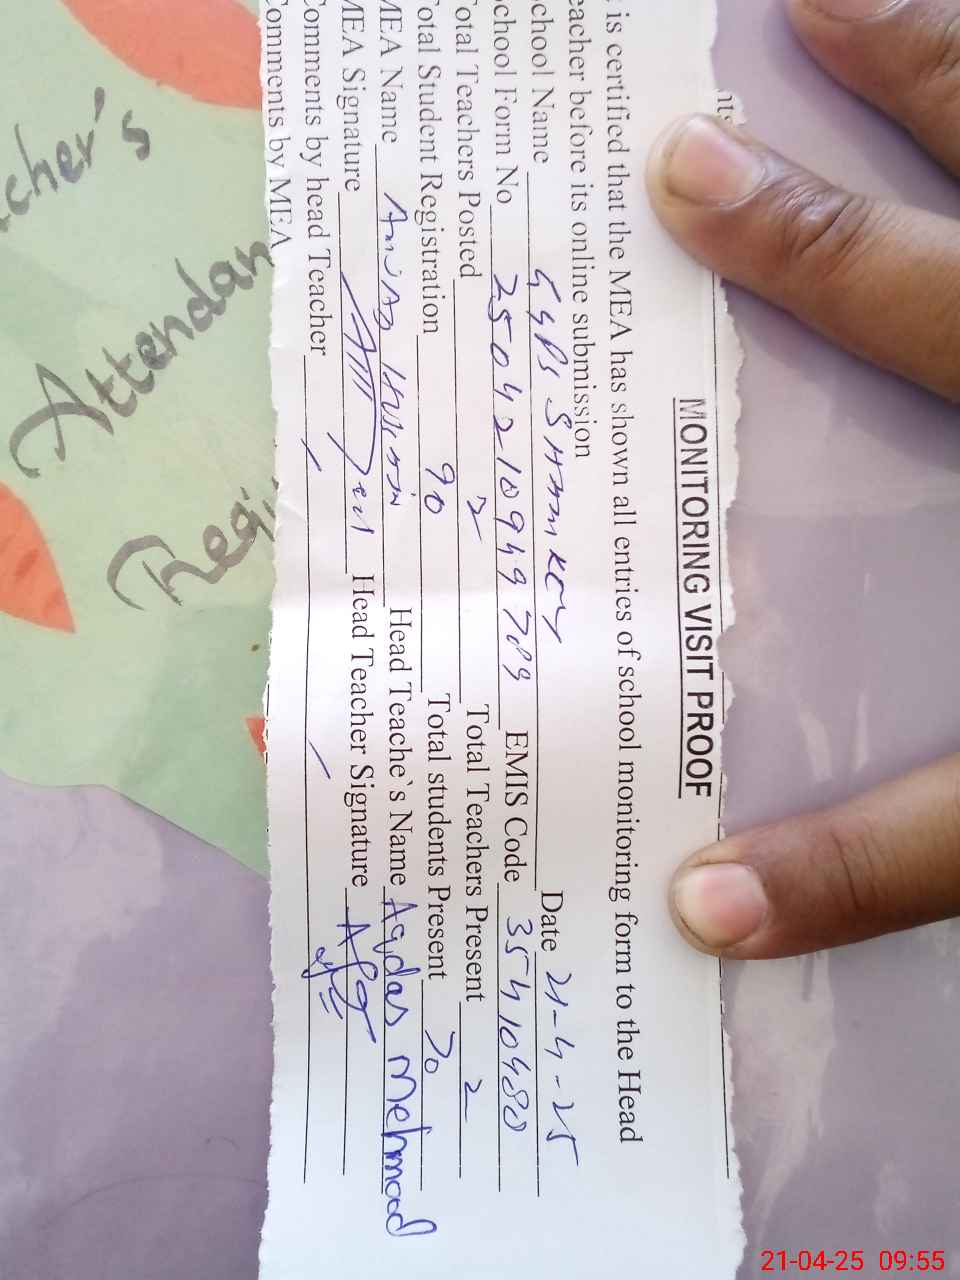 nts
MONITORING VISIT PROOF
is certified that the MEA has shown all entries of school monitoring form to the Head
eacher before its online submission
chool Name GGPS Date 21-4-25
chool Form No 2504210949789 EMIS Code 35410480
otal Teachers Posted 2 Total Teachers Present 2
otal Student Registration 90 Total students Present 70
MEA Name Amjad Hussain Head Teache`s Name Aqdas Mehmood
MEA Signature Head Teacher Signature
Comments by head Teacher
Comments by MEA
cher's
Attendan
Regi
21-04-25 09:55